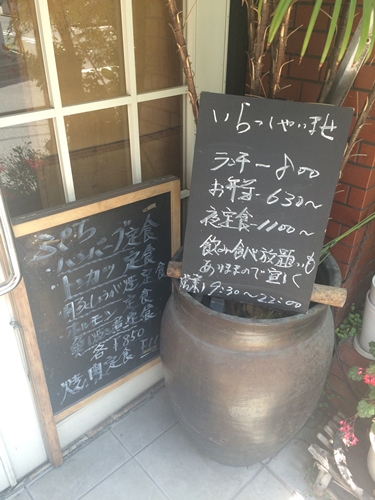 いらっしゃいませ
ランチー800
お弁当-630〜
夜定食-1100〜
飲み食べ放題いも
ありますので宜しく
9:30〜22:00
ハンバーグ定食
トンカツ定食
豚しょうが焼定食
ホルモン定食
各¥850
焼肉定食